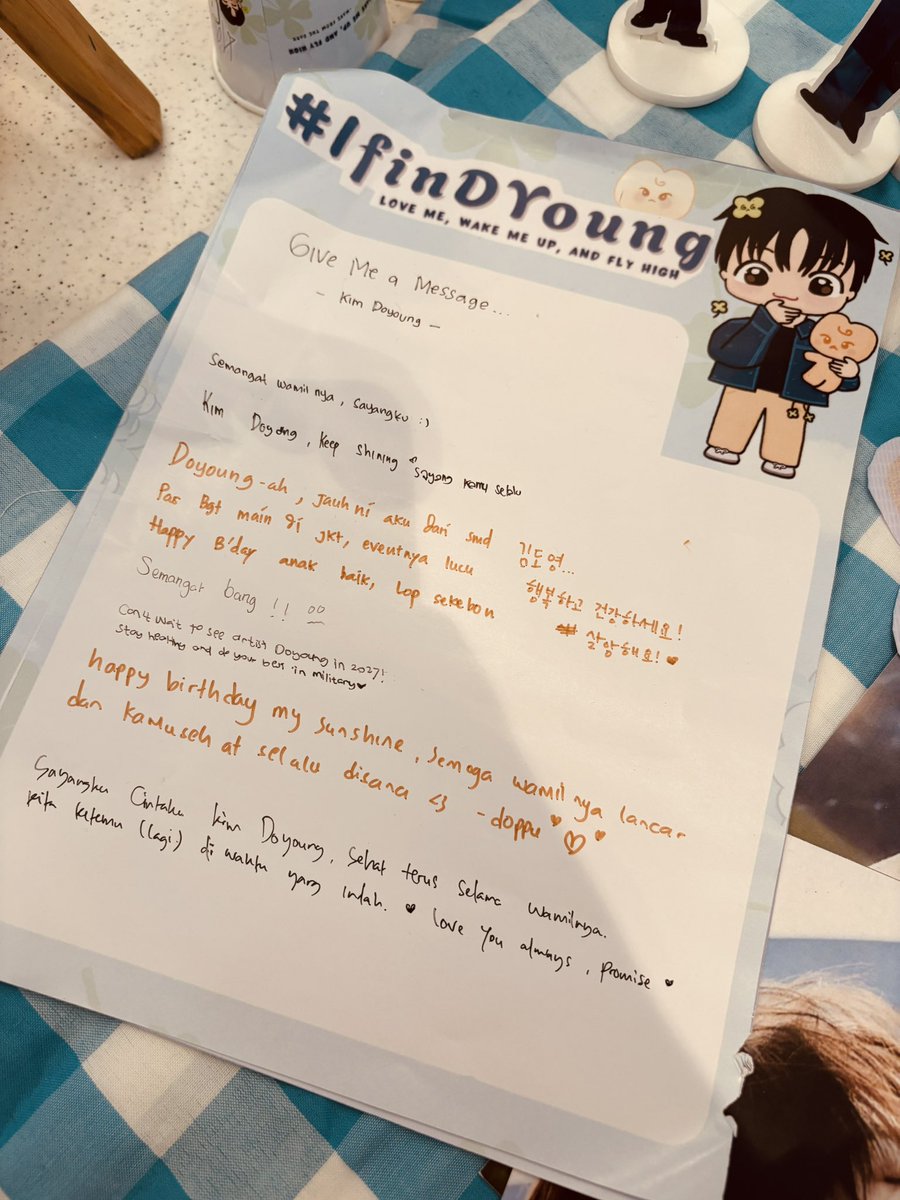 #IfinDYoung
LOVE ME, WAKE ME UP, AND FLY HIGH
GIVE Me a Message...
- Kim Doyoung -
Semangat wamil nya, sayangku :)
Kim Doyong, keep shining sayang kamu seblu
Doyoung-ah, jauh ni aku dari smd
Pas Bgt main di jkt, eventnya lucu
Happy B'day anak baik, Lop sekebon
김도영...
행복하고 건강하세요!
살앙해요! ♥
Semangat bang !!
Can't wait to see artist Doyoung in 2027!
stay healthy and do your best in military♥
happy birthday my sunshine, semoga wamil nya lancar
dan kamu sehat selalu disana <3 -doppu ♥♡♥
Sayangku Cintaku Kim Doyoung, Sehat terus selama wamilnya.
kita ketemu (lagi) di waktu yang indah. ♥ love you always, promise ♥
UP, AND FLY HIGH